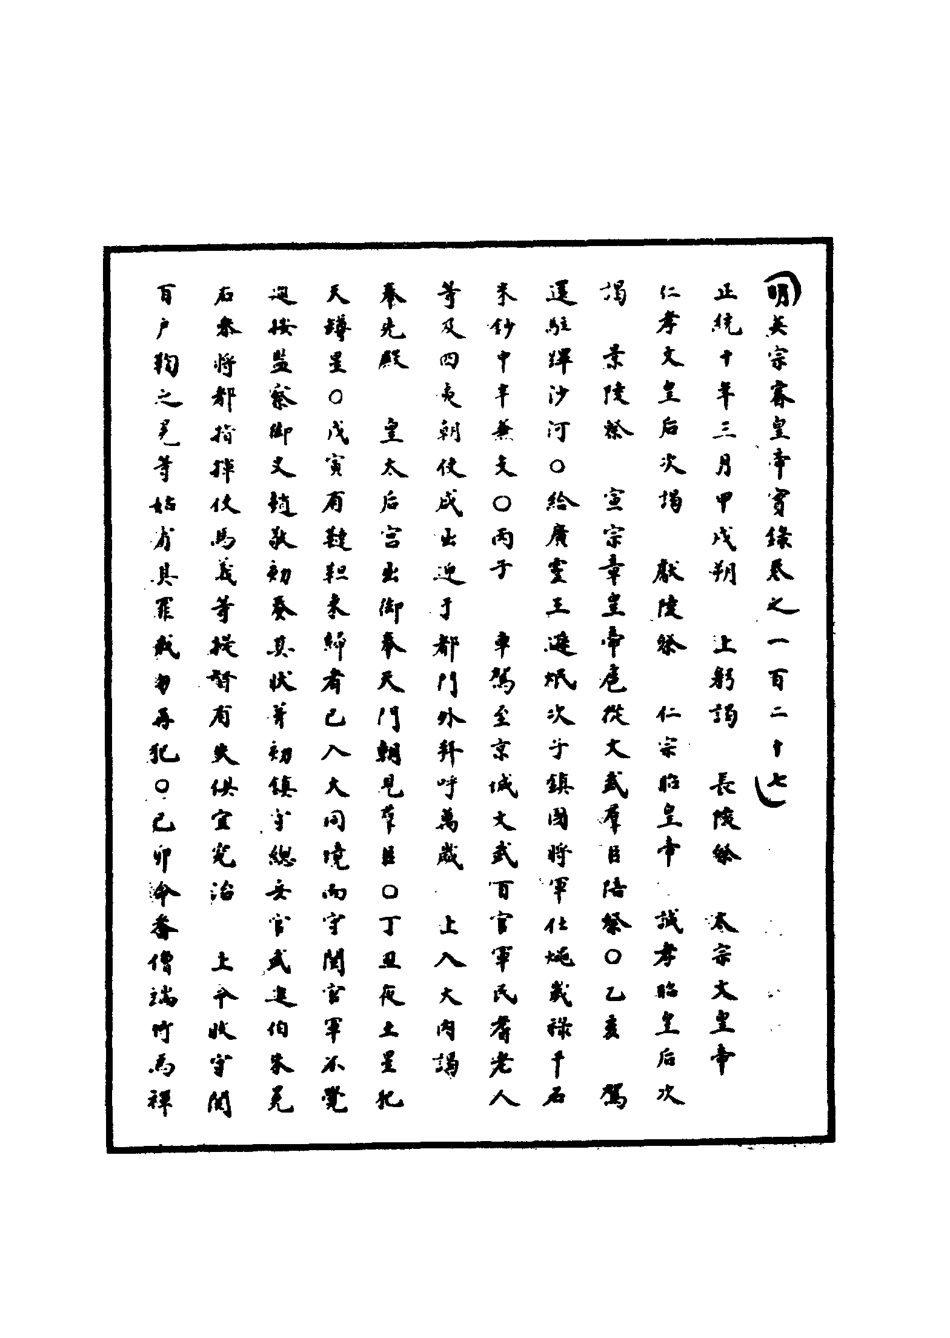 明英宗睿皇帝實錄卷之一百二十七
正統十年三月甲戌朔　上躬謁　長陵祭　太宗文皇帝
仁孝文皇后次謁　獻陵祭　仁宗昭皇帝　誠孝昭皇后次
謁　景陵祭　宣宗章皇帝扈從文武羣臣陪祭○乙亥　駕
還駐蹕沙河○給廣靈王遜㶨次子鎮國將軍仕㙾歲祿千石
米鈔中半兼支○丙子　車駕至京城文武百官軍民耆老人
等及四夷朝使咸出迎于都門外拜呼萬歲　上入大內謁
奉先殿　皇太后宮出御奉天門朝見羣臣○丁丑夜土星犯
天罇星○戊寅有韃靼來歸者已入大同境而守關官軍不覺
巡按監察御史趙敬劾奏其狀并劾鎮守總兵官武進伯朱冕
右參將都指揮使馬義等提督有失俱宜究治　上命收守關
百戶鞫之冕等姑宥其罪戒勿再犯○己卯命番僧端竹爲禪